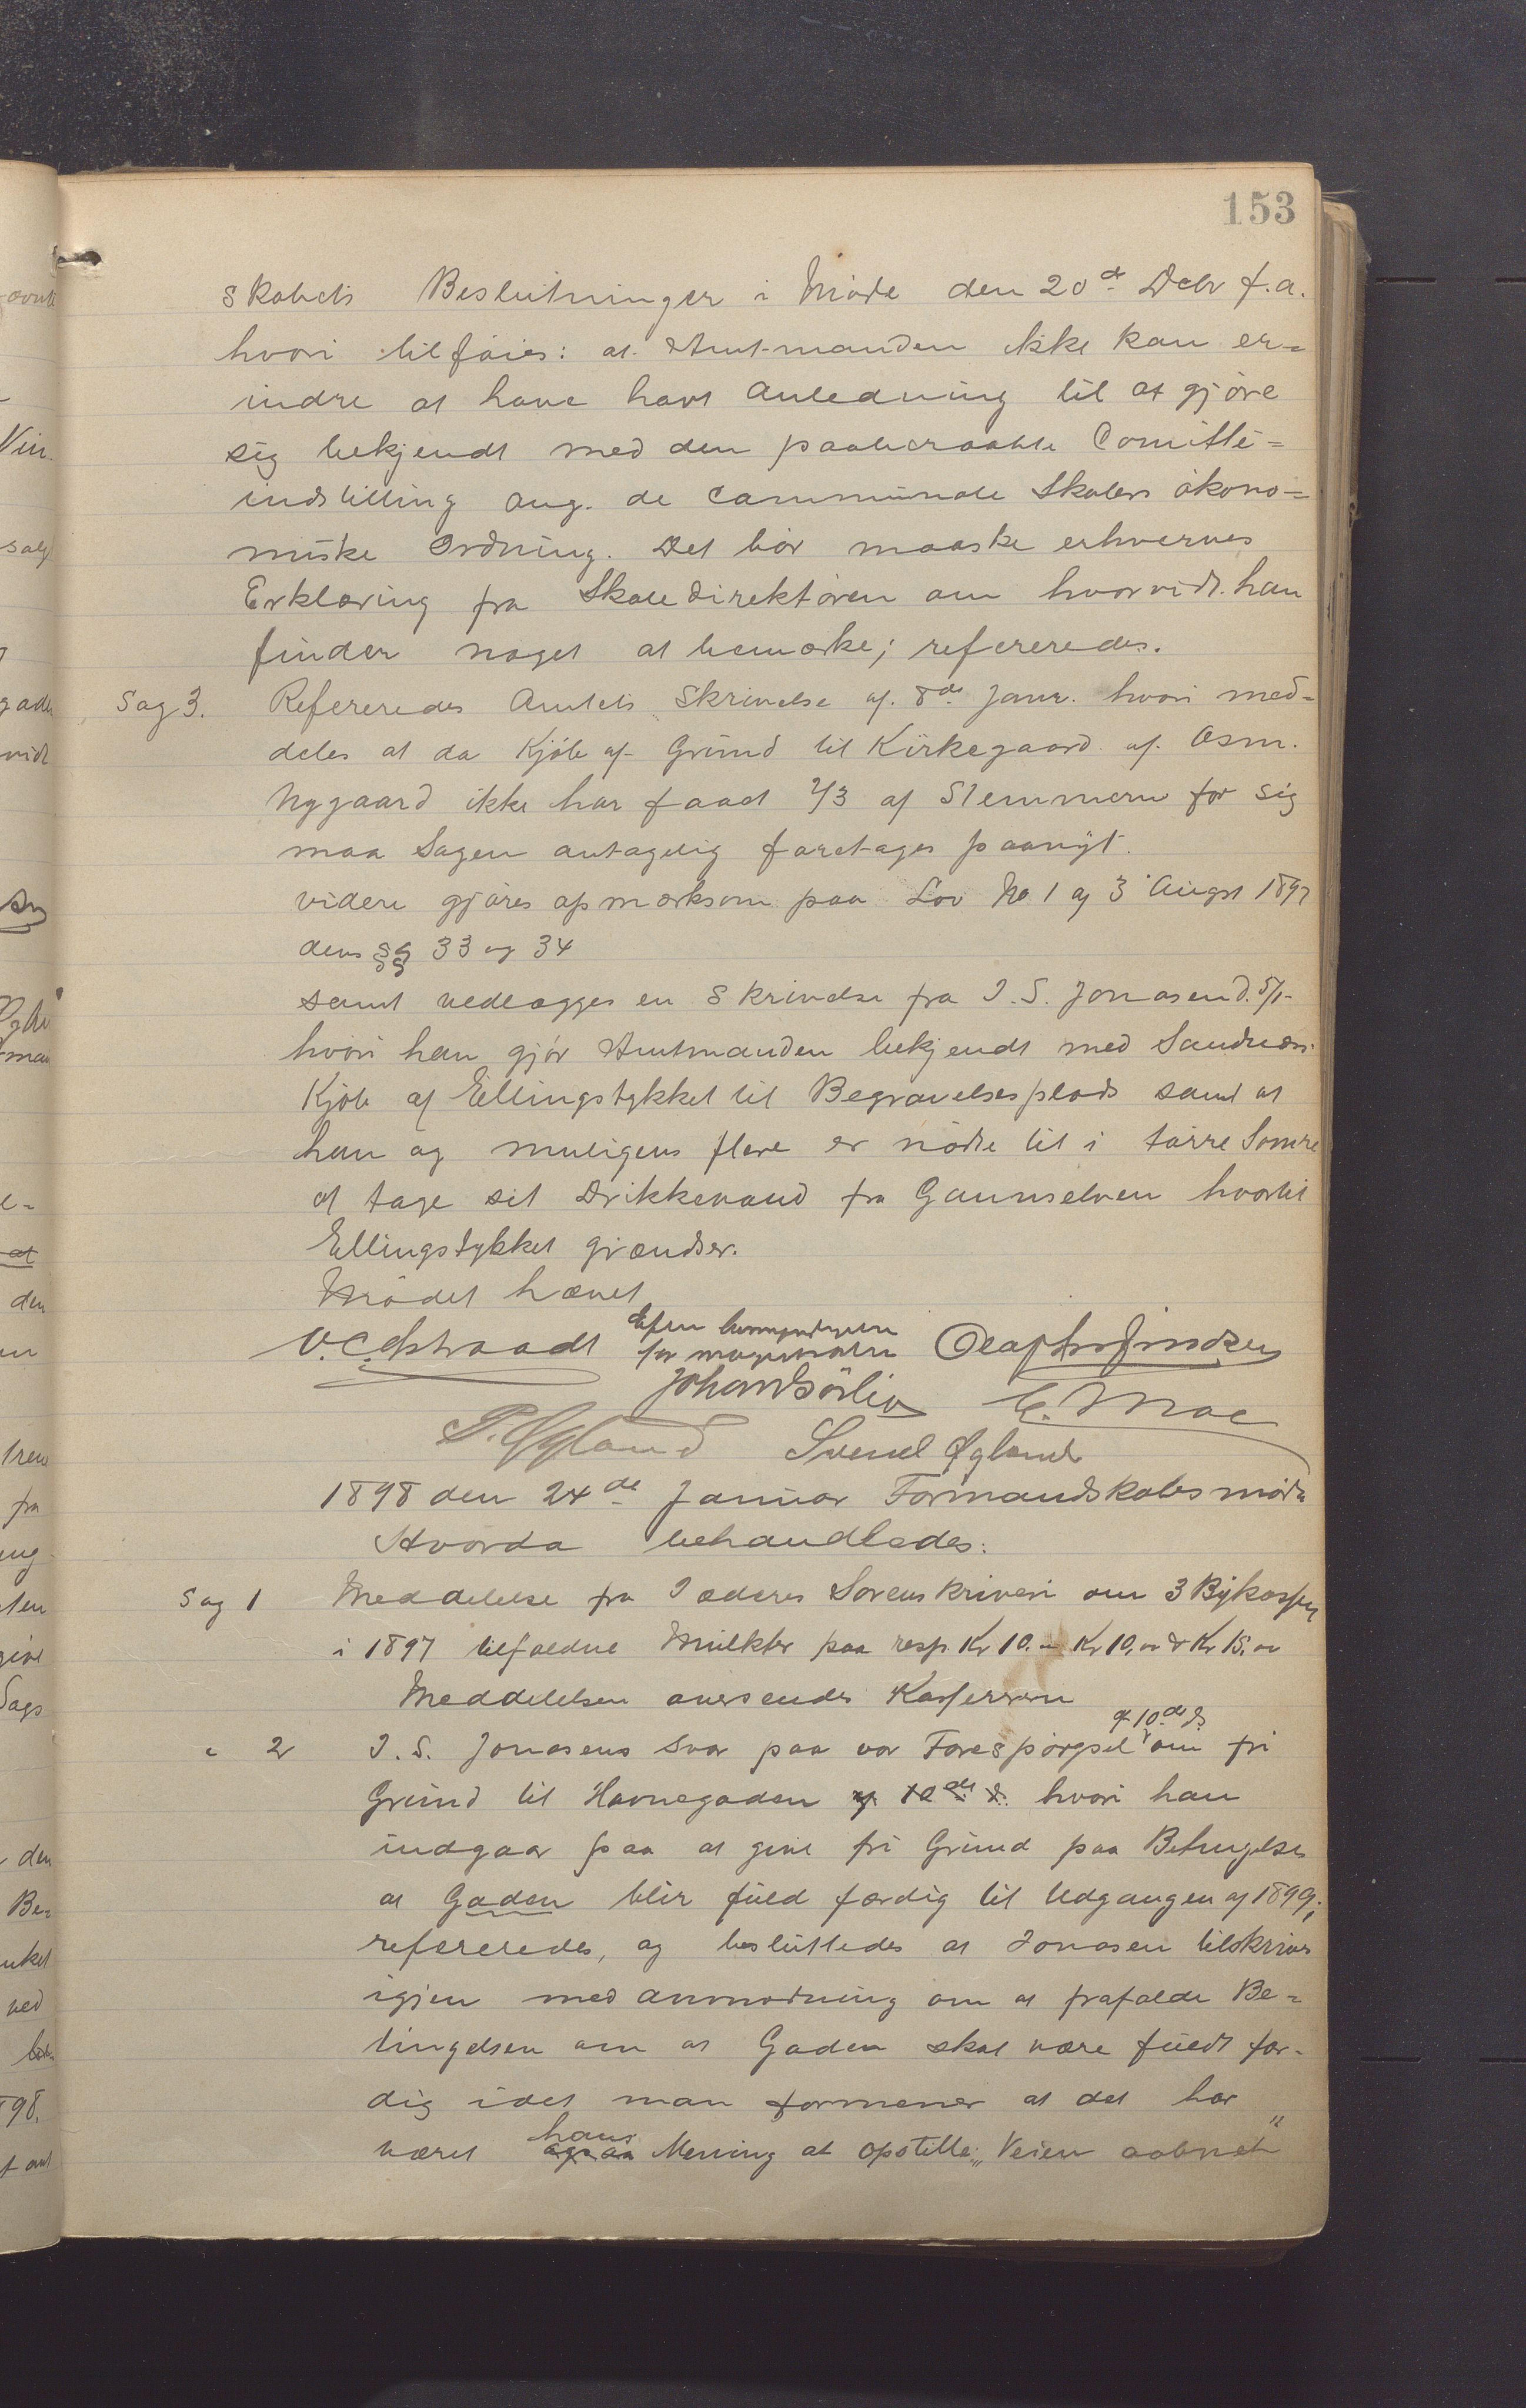 153
skabets Beslutninger i Møde den 20de Debr f.a.
hvori tilføies: at Amtmanden ikke kan er=
indre at have havt Anledning til at gjøre
sig bekjendt med den paaberaabte Comitte=
indstilling ang. de communale Skolers økono=
miske Ordning. Det bør maaske erhverves
Erklæring fra Skoledirektøren om hvorvidt han
finder noget at bemærke; refereredes.
Sag 3. Refereredes Amtets Skrivelse af 8de Janr. hvori med=
deles at da Kjøb af Grund til Kirkegaard af Asm.
Nygaard ikke har faaet 2/3 af Stemmern for sig
maa Sagen antagelig foretages paanyt.
videre gjøres opmærksom paa Lov No 1 af 3 Augst 1897
dens §§ 33 og 34
samt vedlægges en Skrivelse fra I. S. Jonasen d. 5/1
hvori han gjør Amtmanden bekjendt med Sandnæs
Kjøb af Ellingstykket til Begravelsesplads samt at
han og muligens flere er nødte til i tørre Somre
at tage sit Drikkevand fra Gannselven hvortil
Ellingstykket grændser.
Mødet hævet
Efter bemyndigelse
for magistraten
Johan Sörlie
E. Moe
Svend Øgland
1898 den 24de Januar Formandskabsmøde
Hvorda behandledes:
Sag 1 Meddelelse fra Jæderes Sorenskriveri om 3 Bykassen
i 1897 tilfaldne Mulkter paa resp. Kr 10. Kr 10,00 & Kr 15.00
Meddelelsen oversendes Kassereren
" 2 I. S. Jonasens Svar paa vor Forespørgsel af 10de ds om fri
Grund til Havnegaden af 10de ds. hvori han
indgaar paa at give fri Grund paa Betingelse
at Gaden blir fuld færdig til Udgangen af 1899;
refereredes, og besluttedes at Jonasen tilskrives
igjen med Anmodning om at frafalde Be=
tingelsen om at Gaden skal være fuldt fær=
dig idet man formener at det har
været hans Mening at opstille „Veien aabnet"